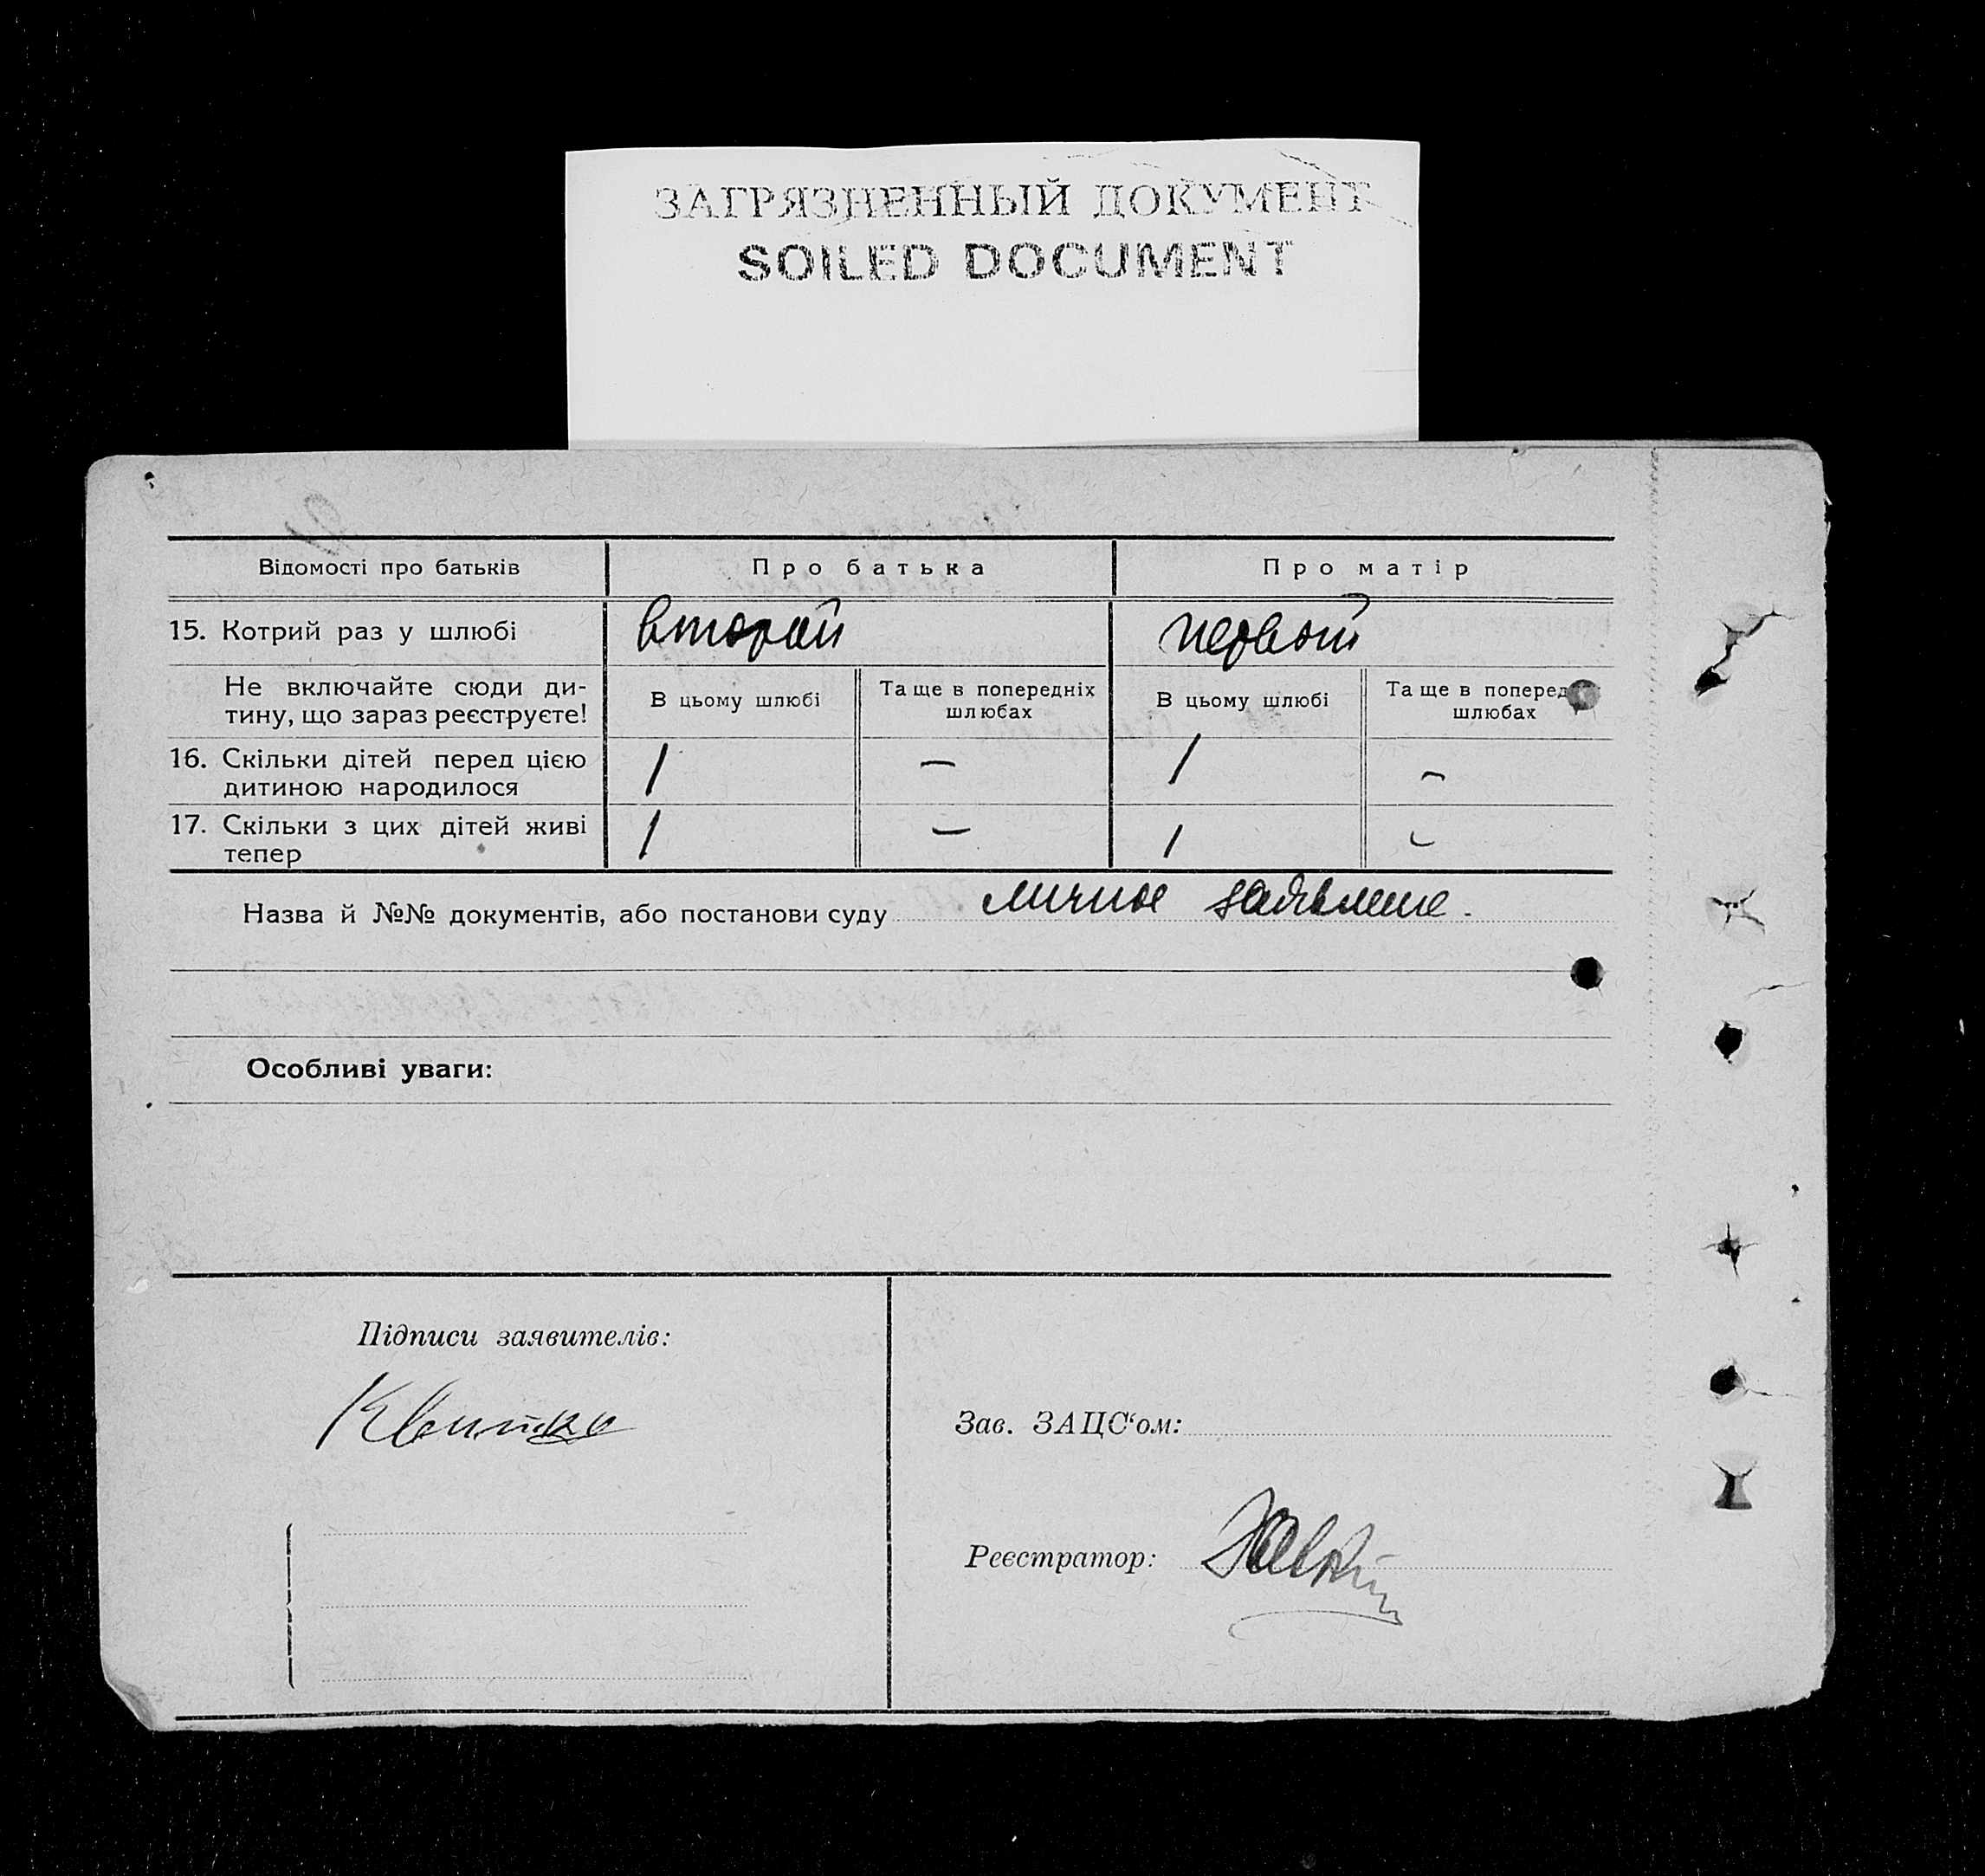 ЗАГРЯЗНЕННЫЙ ДОКУМЕНТ
SOILED DOCUMENT
Відомості про батьків Про батька Про матір
15. Котрий раз у шлюбі второй первой
Не включайте сюди ди-
тину, що зараз реєструєте!
В цьому шлюбі
Та ще в попередніх
шлюбах
В цьому шлюбі
Та ще в поперед
шлюбах
16. Скільки дітей перед цією
дитиною народилося
1 — 1 —
17. Скільки з цих дітей живі
тепер
1 — 1 —
Назва й №№ документів, або постанови суду личное заявление.
Особливі уваги:
Підписи заявителів:
Квитко
Зав. ЗАЦС‘ом:
Реєстратор: